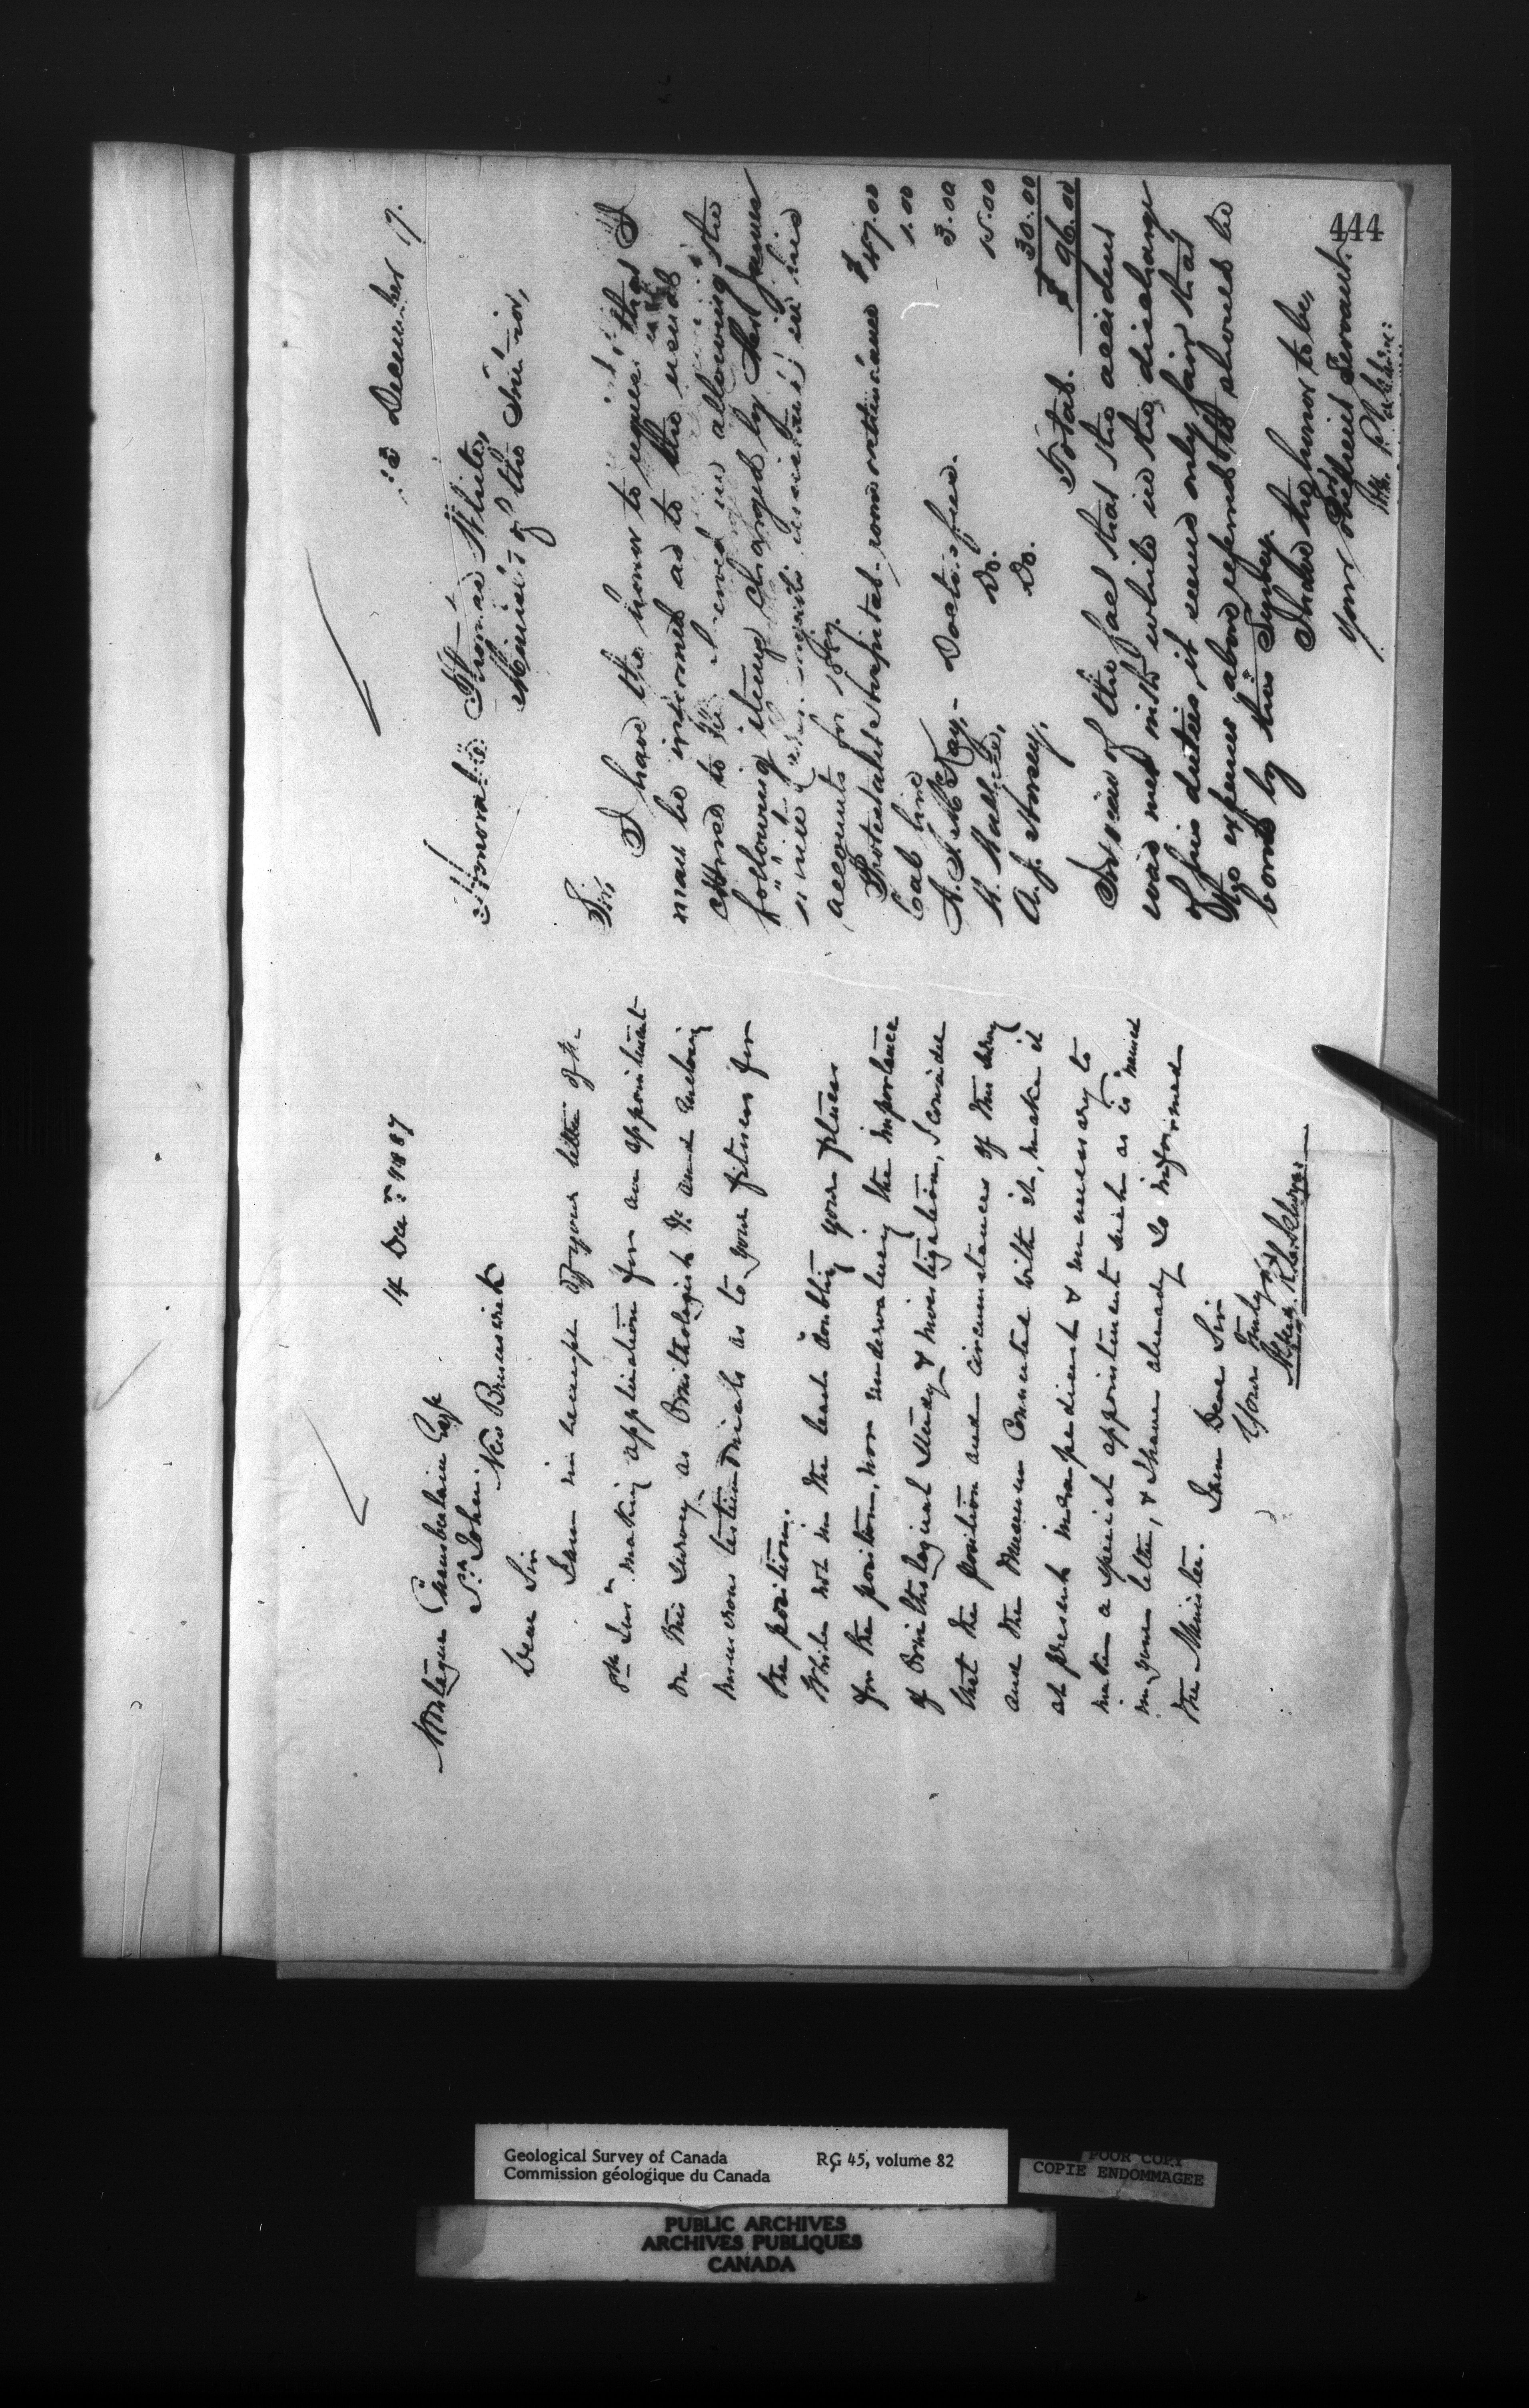 14 Decr 1887
Montague Chamberlain Esqr
St. John
New Brunswick
Dear Sir
I am in receipt of your letter of the
8th Inst making application for an appointment
on this Survey as Ornithologist &c and enclosing
numerous testimonials as to your fitness for
the position.
While not in the least doubting your fitness
for the position, nor undervaluing the importance
of Ornithological Study & investigation, I consider
that the position and circumstances of this Survey
and the Museum Connected with it, make it
at present inexpedient & unnecessary to
make a special appointment such as is named
in your letter, & I have already so informed
the Minister.
I am Dear Sir
Yours truly
December 17.
Honorable
Thomas White,
Minister of the Interior,
Sir,
I have the honor to request that I
may be informed as to the usual
course to be in allowing the
following items charged by Mr James
in his
accounts for 1887.
Protestant Hospital - room & attendance $47.00
Cab hire 1.00
McKay, - Doctor's fees. 3.00
Do. 15.00
A. J. Horsey, Do. 30.00
Total. $ 96.00
In view of the fact that the accident
was met with while in the discharge
of his duties, it seems only fair that
the expenses above referred to should be
borne by this Survey.
I have the honor to be,
Sir,
Your obedient Servant.
444
Geological Survey of Canada RG 45, volume 82
Commission géologique du Canada
POOR COPY
COPIE ENDOMMAGEE
PUBLIC ARCHIVES
ARCHIVES PUBLIQUES
CANADA